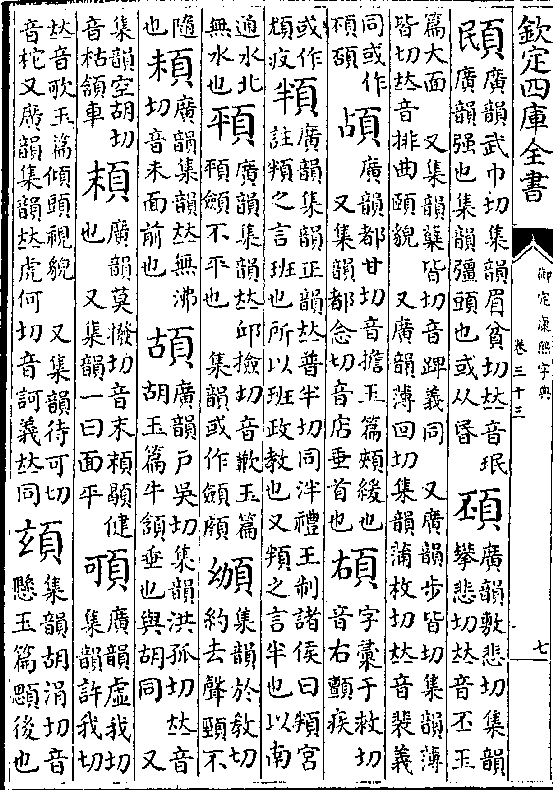 欽定四庫全書
御定康熙字典
卷三十三
七
䪸廣韻武巾切集韻眉貧切𠀤音珉
廣韻强也集韻彊頭也或从昬
頚廣韻敷悲切集韻
攀悲切𠀤音丕玉
篇大面 又集韻蘖皆切音䠋義同 又廣韻步皆切集韻薄
皆切𠀤音排曲頤貌 又廣韻薄回切集韻蒲枚切𠀤音裴義
同或作
䪹頢
䪴廣韻都甘切音擔玉篇頰緩也
又集韻都念切音店垂首也
頄字彙于救切
音右顫疾
或作
疣
頖廣韻集韻正韻𠀤普半切同泮禮王制諸侯曰頖宮
註頖之言班也所以班政教也又頖之言半也以南
通水北
無水也
𩑮廣韻集韻𠀤邱撿切音歉玉篇
𩑮顩不平也 集韻或作顩頗
䪺集韻於教切
約去聲頸不
隨
也
䫍廣韻集韻𠀤無沸
切音未面前也
頶廣韻戶吳切集韻洪孤切𠀤音
胡玉篇牛頷垂也與胡同 又
集韻空胡切
音枯頷車
䫂廣韻莫撥切音末䫂顯健
也 又集韻一曰面平
䪽廣韻虛我切
集韻許我切
𠀤音歌玉篇傾頭視貌 又集韻待可切
音柁又廣韻集韻𠀤虎何切音訶義𠀤同
䪻集韻胡涓切音
懸玉篇顋後也